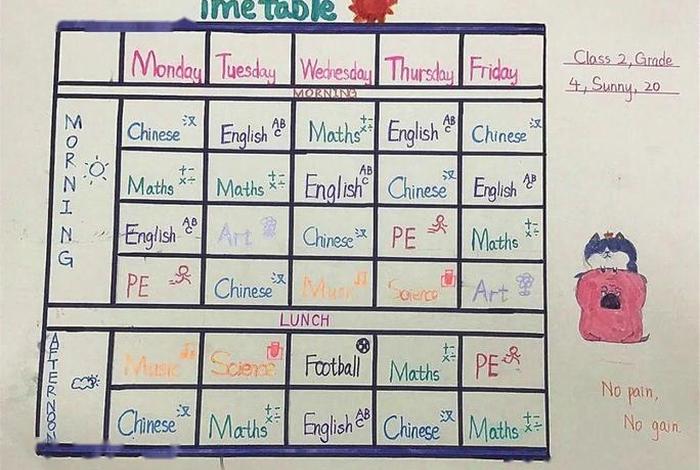 Timetable
Monday Tuesday Wednesday Thursday Friday
MORNING
MORNING
Chinese 汉 English ABC Maths +-×÷ English ABC Chinese 汉
Maths +-×÷ Maths +-×÷ English ABC Chinese 汉 English ABC
English ABC Art Chinese 汉 PE Maths +-×÷
PE Chinese 汉 Music Science Art
LUNCH
AFTERNOON
Music Science Football Maths +-×÷ PE
Chinese 汉 Maths +-×÷ English ABC Chinese 汉 Maths +-×÷
Class 2, Grade
4, Sunny, 20
No pain,
No gain.